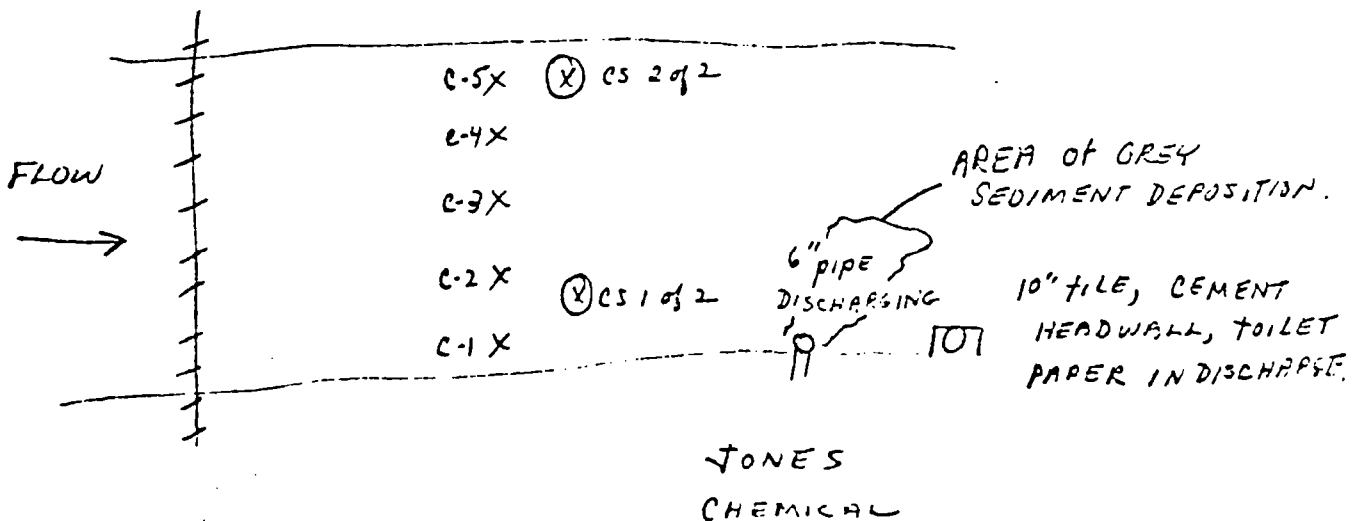 C-5X
(X) CS 2 of 2
C-4X
FLOW
C-3X
AREA of GREY
SEDIMENT DEPOSITION.
C-2 X
(X) CS 1 of 2
6" PIPE
DISCHARGING
10" TILE, CEMENT
HEADWALL, TOILET
PAPER IN DISCHARGE.
C-1 X
JONES
CHEMICAL